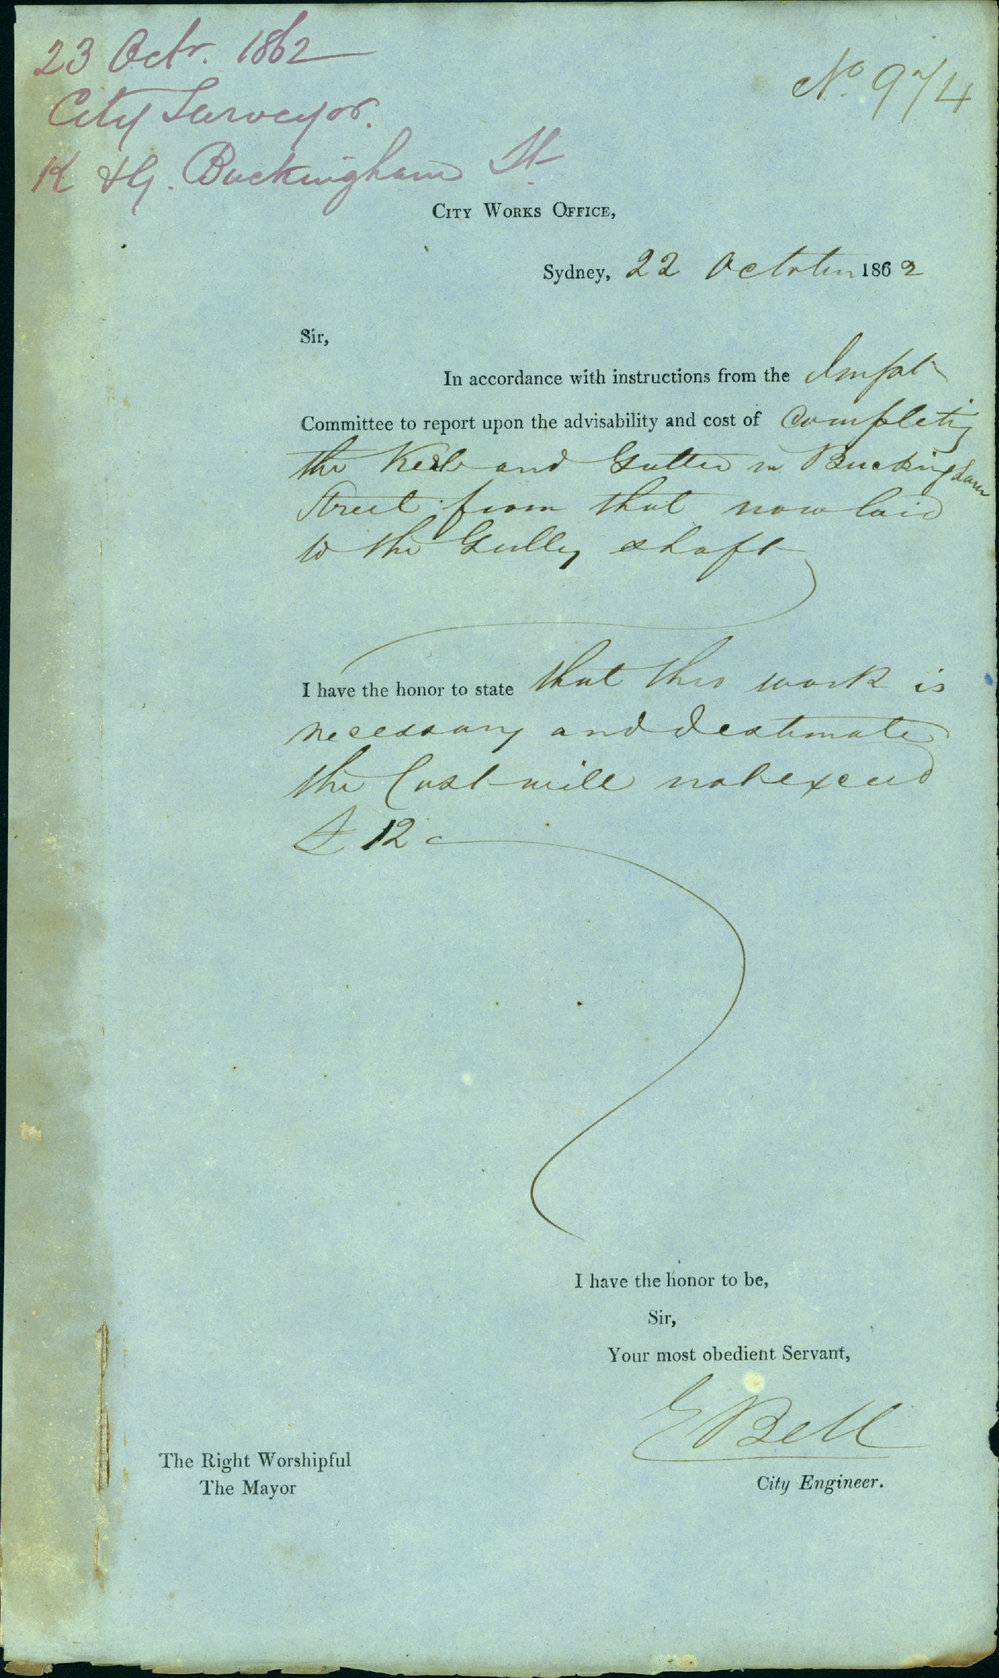 23 Octr. 1862
City Surveyor.
K & G. Buckingham St
No 974
CITY WORKS OFFICE,
Sydney, 22 October 1862
Sir,
In accordance with instructions from the Impt
Committee to report upon the advisability and cost of completing
the Kerb and Gutter in Buckingham
Street from that now laid
to the Gully shaft
I have the honor to state that this work is
necessary and I estimate
the Cost will not exceed
£ 12
I have the honor to be,
Sir,
Your most obedient Servant,
E Bell
City Engineer.
The Right Worshipful
The Mayor